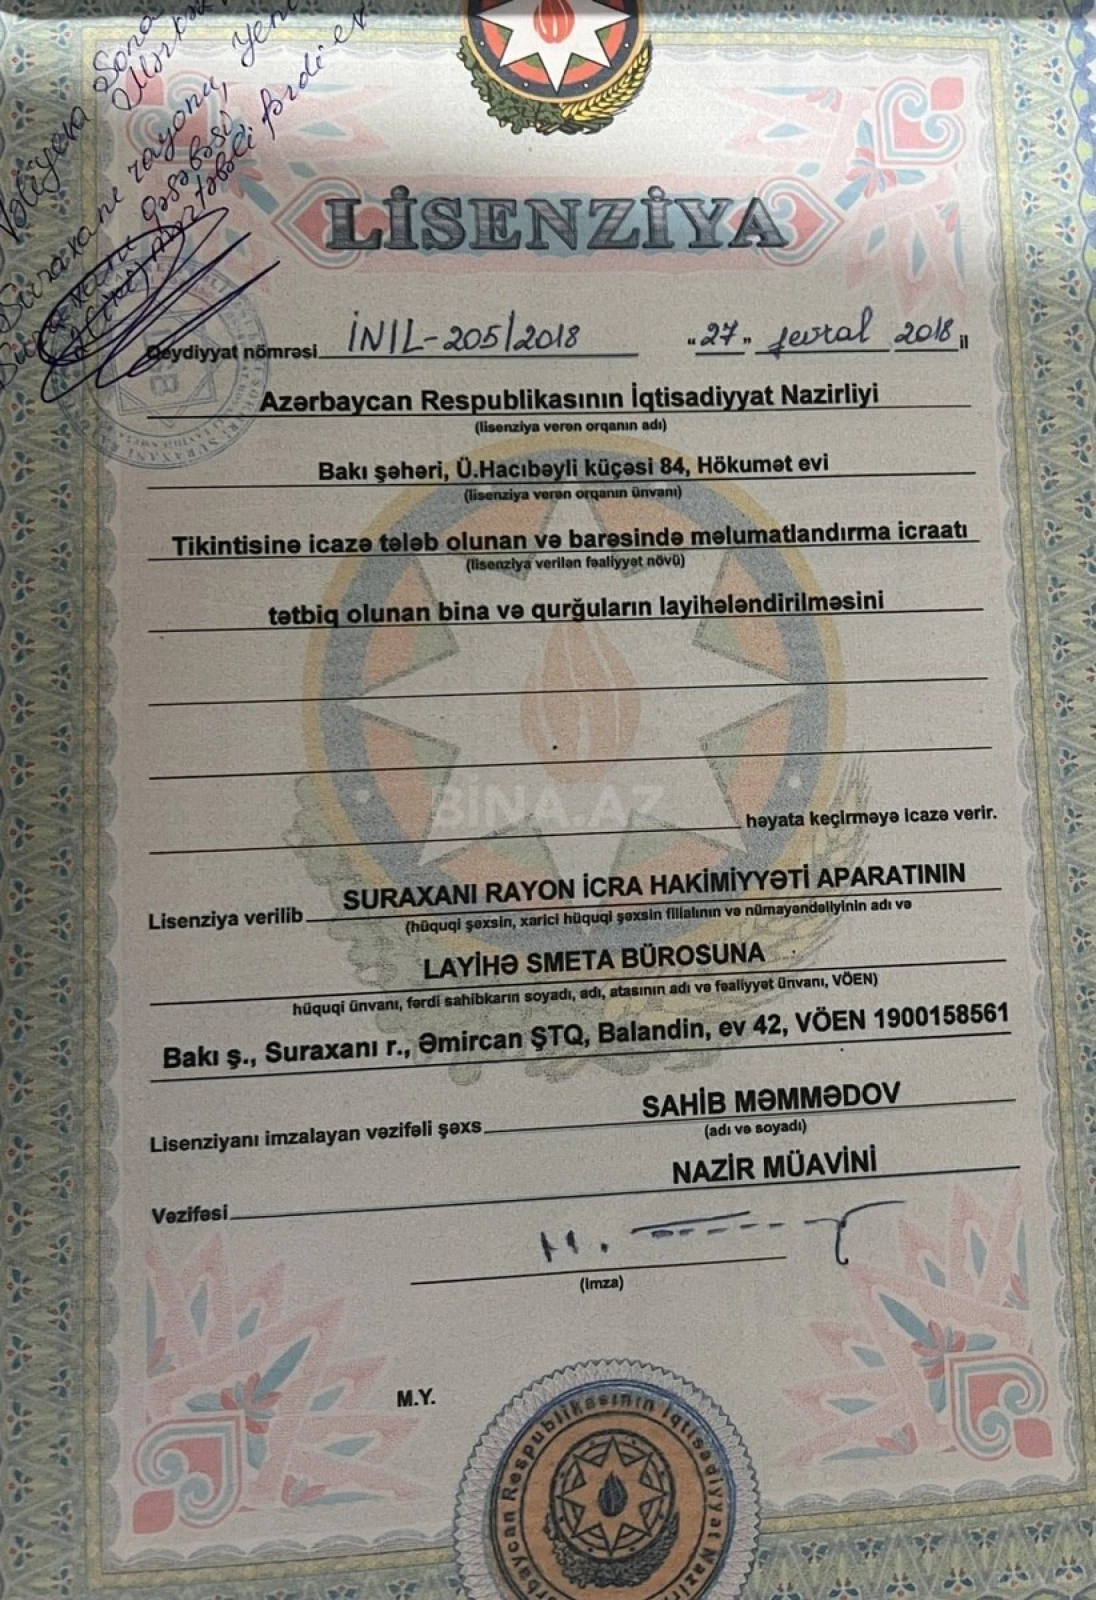 Vəliyeva Sona
Mərkəz
Suraxanı rayonu, yeni
Suraxanı qəsəbəsi,
mərtəbəli fərdi ev
LİSENZİYA
Qeydiyyat nömrəsi İNIL-205/2018 "27" fevral 2018 il
Azərbaycan Respublikasının İqtisadiyyat Nazirliyi
(lisenziya verən orqanın adı)
Bakı şəhəri, Ü.Hacıbəyli küçəsi 84, Hökumət evi
(lisenziya verən orqanın ünvanı)
Tikintisinə icazə tələb olunan və barəsində məlumatlandırma icraatı
(lisenziya verilən fəaliyyət növü)
tətbiq olunan bina və qurğuların layihələndirilməsini
BİNA.AZ
həyata keçirməyə icazə verir.
Lisenziya verilib SURAXANI RAYON İCRA HAKİMİYYƏTİ APARATININ
(hüquqi şəxsin, xarici hüquqi şəxsin filialının və nümayəndəliyinin adı və
LAYİHƏ SMETA BÜROSUNA
hüquqi ünvanı, fərdi sahibkarın soyadı, adı, atasının adı və fəaliyyət ünvanı, VÖEN)
Bakı ş., Suraxanı r., Əmircan ŞTQ, Balandin, ev 42, VÖEN 1900158561
Lisenziyanı imzalayan vəzifəli şəxs SAHİB MƏMMƏDOV
(adı və soyadı)
Vəzifəsi NAZİR MÜAVİNİ
(imza)
M.Y.
Azərbaycan Respublikasının İqtisadiyyat Nazirliyi